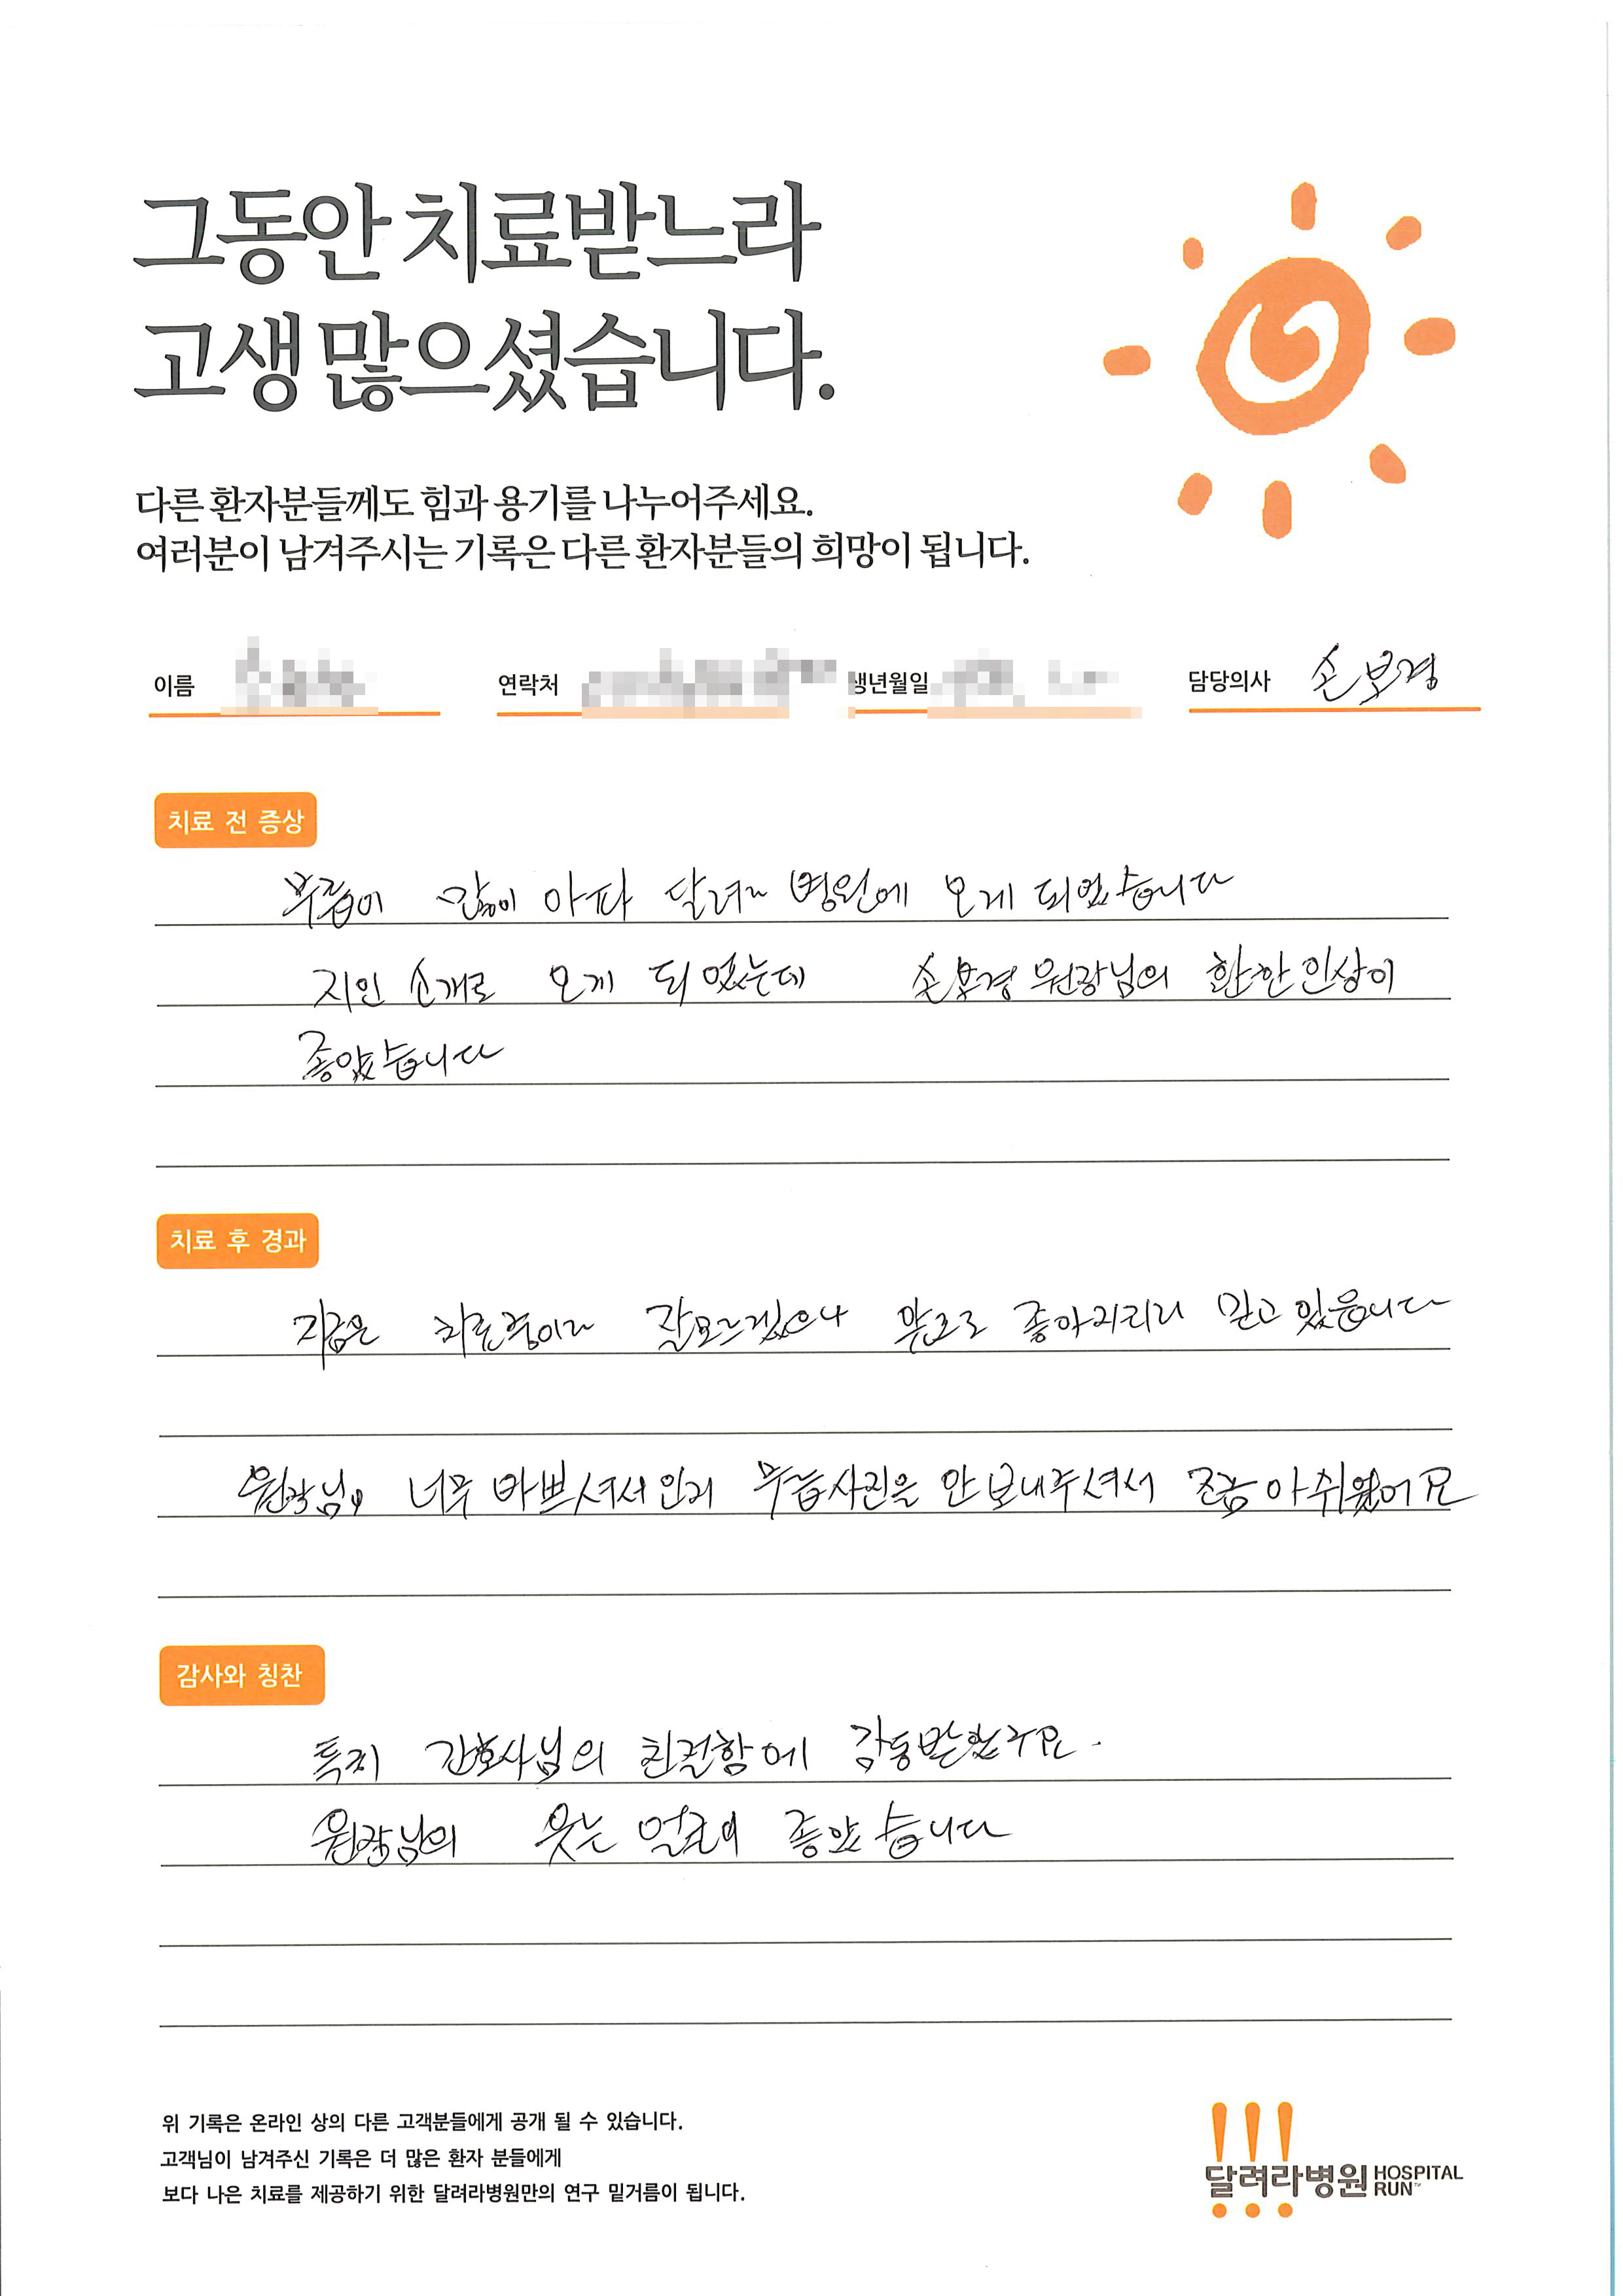 그동안 치료받느라
고생 많으셨습니다.
다른 환자분들께도 힘과 용기를 나누어주세요.
여러분이 남겨주시는 기록은 다른 환자분들의 희망이 됩니다.
이름 연락처 생년월일 담당의사 손보경
치료 전 증상
무릎이 많이 아파 달려라 병원에 오게 되었습니다
지인 소개로 오게 되었는데 손보경 원장님의 환한 인상이
좋았습니다
치료 후 경과
지금은 치료중이라 잘모르겠으나 앞으로 좋아지리라 믿고 있읍니다
원장님이 너무 바쁘셔서인지 무릎사진을 안 보내주셔서 조금 아쉬웠어요
감사와 칭찬
특히 간호사님의 친절함에 감동받았구요.
원장님의 웃는 얼굴이 좋았습니다
위 기록은 온라인 상의 다른 고객분들에게 공개 될 수 있습니다.
고객님이 남겨주신 기록은 더 많은 환자 분들에게
보다 나은 치료를 제공하기 위한 달려라병원만의 연구 밑거름이 됩니다.
달려라병원 HOSPITAL
RUN™